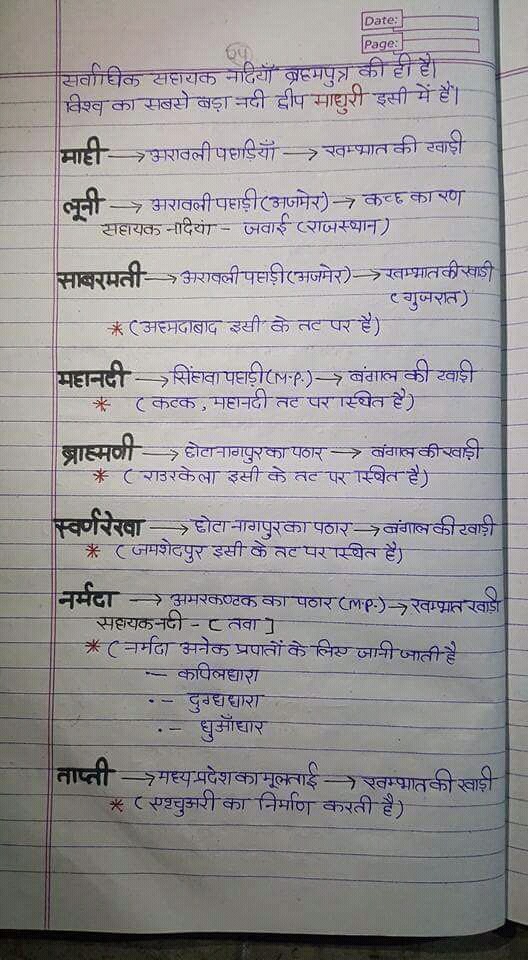 Date:
Page:
24
सर्वाधिक सहायक नदियाँ ब्रहमपुत्र की ही है।
विश्व का सबसे बड़ा नदी द्वीप माधुरी इसी में है।
माही → अरावली पहाड़ियाँ → खम्भात की खाड़ी
लूनी → अरावली पहाड़ी (अजमेर) → कच्छ का रण
सहायक नदियाँ - जवाई (राजस्थान)
साबरमती → अरावली पहाड़ी (अजमेर) → खम्भात की खाड़ी
(गुजरात)
* (अहमदाबाद इसी के तट पर है)
महानदी → सिंहावा पहाड़ी (M.P.) → बंगाल की खाड़ी
* (कटक, महानदी तट पर स्थित है)
ब्राह्मणी → छोटा नागपुर का पठार → बंगाल की खाड़ी
* (राउरकेला इसी के तट पर स्थित है)
स्वर्णरेखा → छोटा नागपुर का पठार → बंगाल की खाड़ी
* (जमशेदपुर इसी के तट पर स्थित है)
नर्मदा → अमरकण्टक का पठार (M.P.) → खम्भात खाड़ी
सहायक नदी - [तवा]
* (नर्मदा अनेक प्रपातों के लिए जानी जाती है
— कपिलधारा
·— दुग्धधारा
·— धुआँधार
ताप्ती → मध्य प्रदेश का मूलताई → खम्भात की खाड़ी
* (एश्चुअरी का निर्माण करती है)